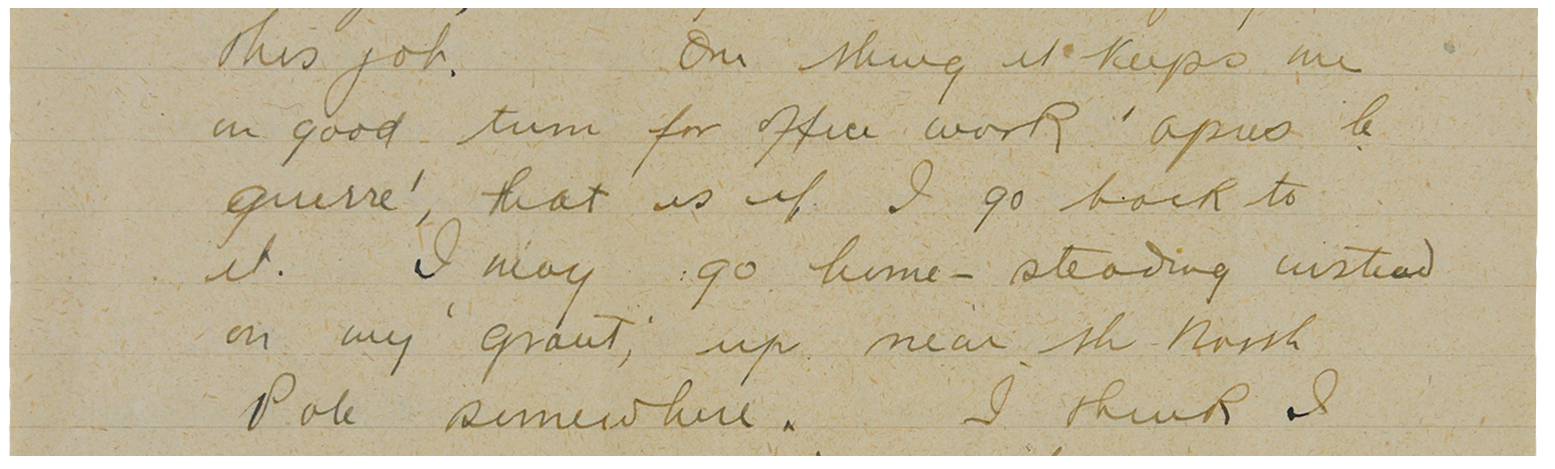 this job. One thing it keeps me
in good turn for office work 'apres le
guerre', that is if I go back to
it. I may go home-steading instead
on my 'grant', up near the North
Pole somewhere. I think I